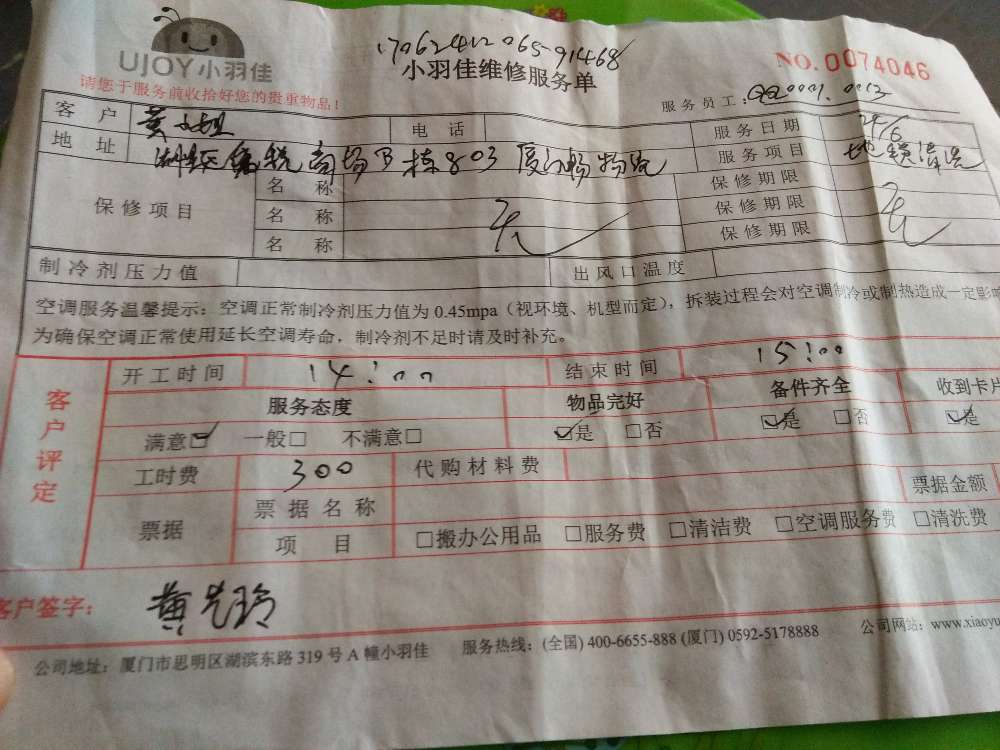 UJOY小羽佳
17062412065-91468
NO.0074046
小羽佳维修服务单
请您于服务前收拾好您的贵重物品！
服务员工：
客户 黄小姐 电话 服务日期 24/6
地址 保税市场B栋803 服务项目 地毯清洗
保修项目 名称 无 保修期限 无
名称 保修期限
名称 保修期限
制冷剂压力值 出风口温度
空调服务温馨提示：空调正常制冷剂压力值为 0.45mpa（视环境、机型而定），拆装过程会对空调制冷或制热造成一定影响
为确保空调正常使用延长空调寿命，制冷剂不足时请及时补充。
客户评定
开工时间 14:00 结束时间 15:00
服务态度 物品完好 备件齐全 收到卡片
满意☑ 一般□ 不满意□ ☑是 □否 ☑是 □否 ☑是
工时费 300 代购材料费
票据 票据名称 票据金额
项目 □搬办公用品 □服务费 □清洁费 □空调服务费 □清洗费
客户签字：
公司地址：厦门市思明区湖滨东路 319 号 A 幢小羽佳 服务热线：(全国) 400-6655-888 (厦门) 0592-5178888 公司网站：www.xiaoyu